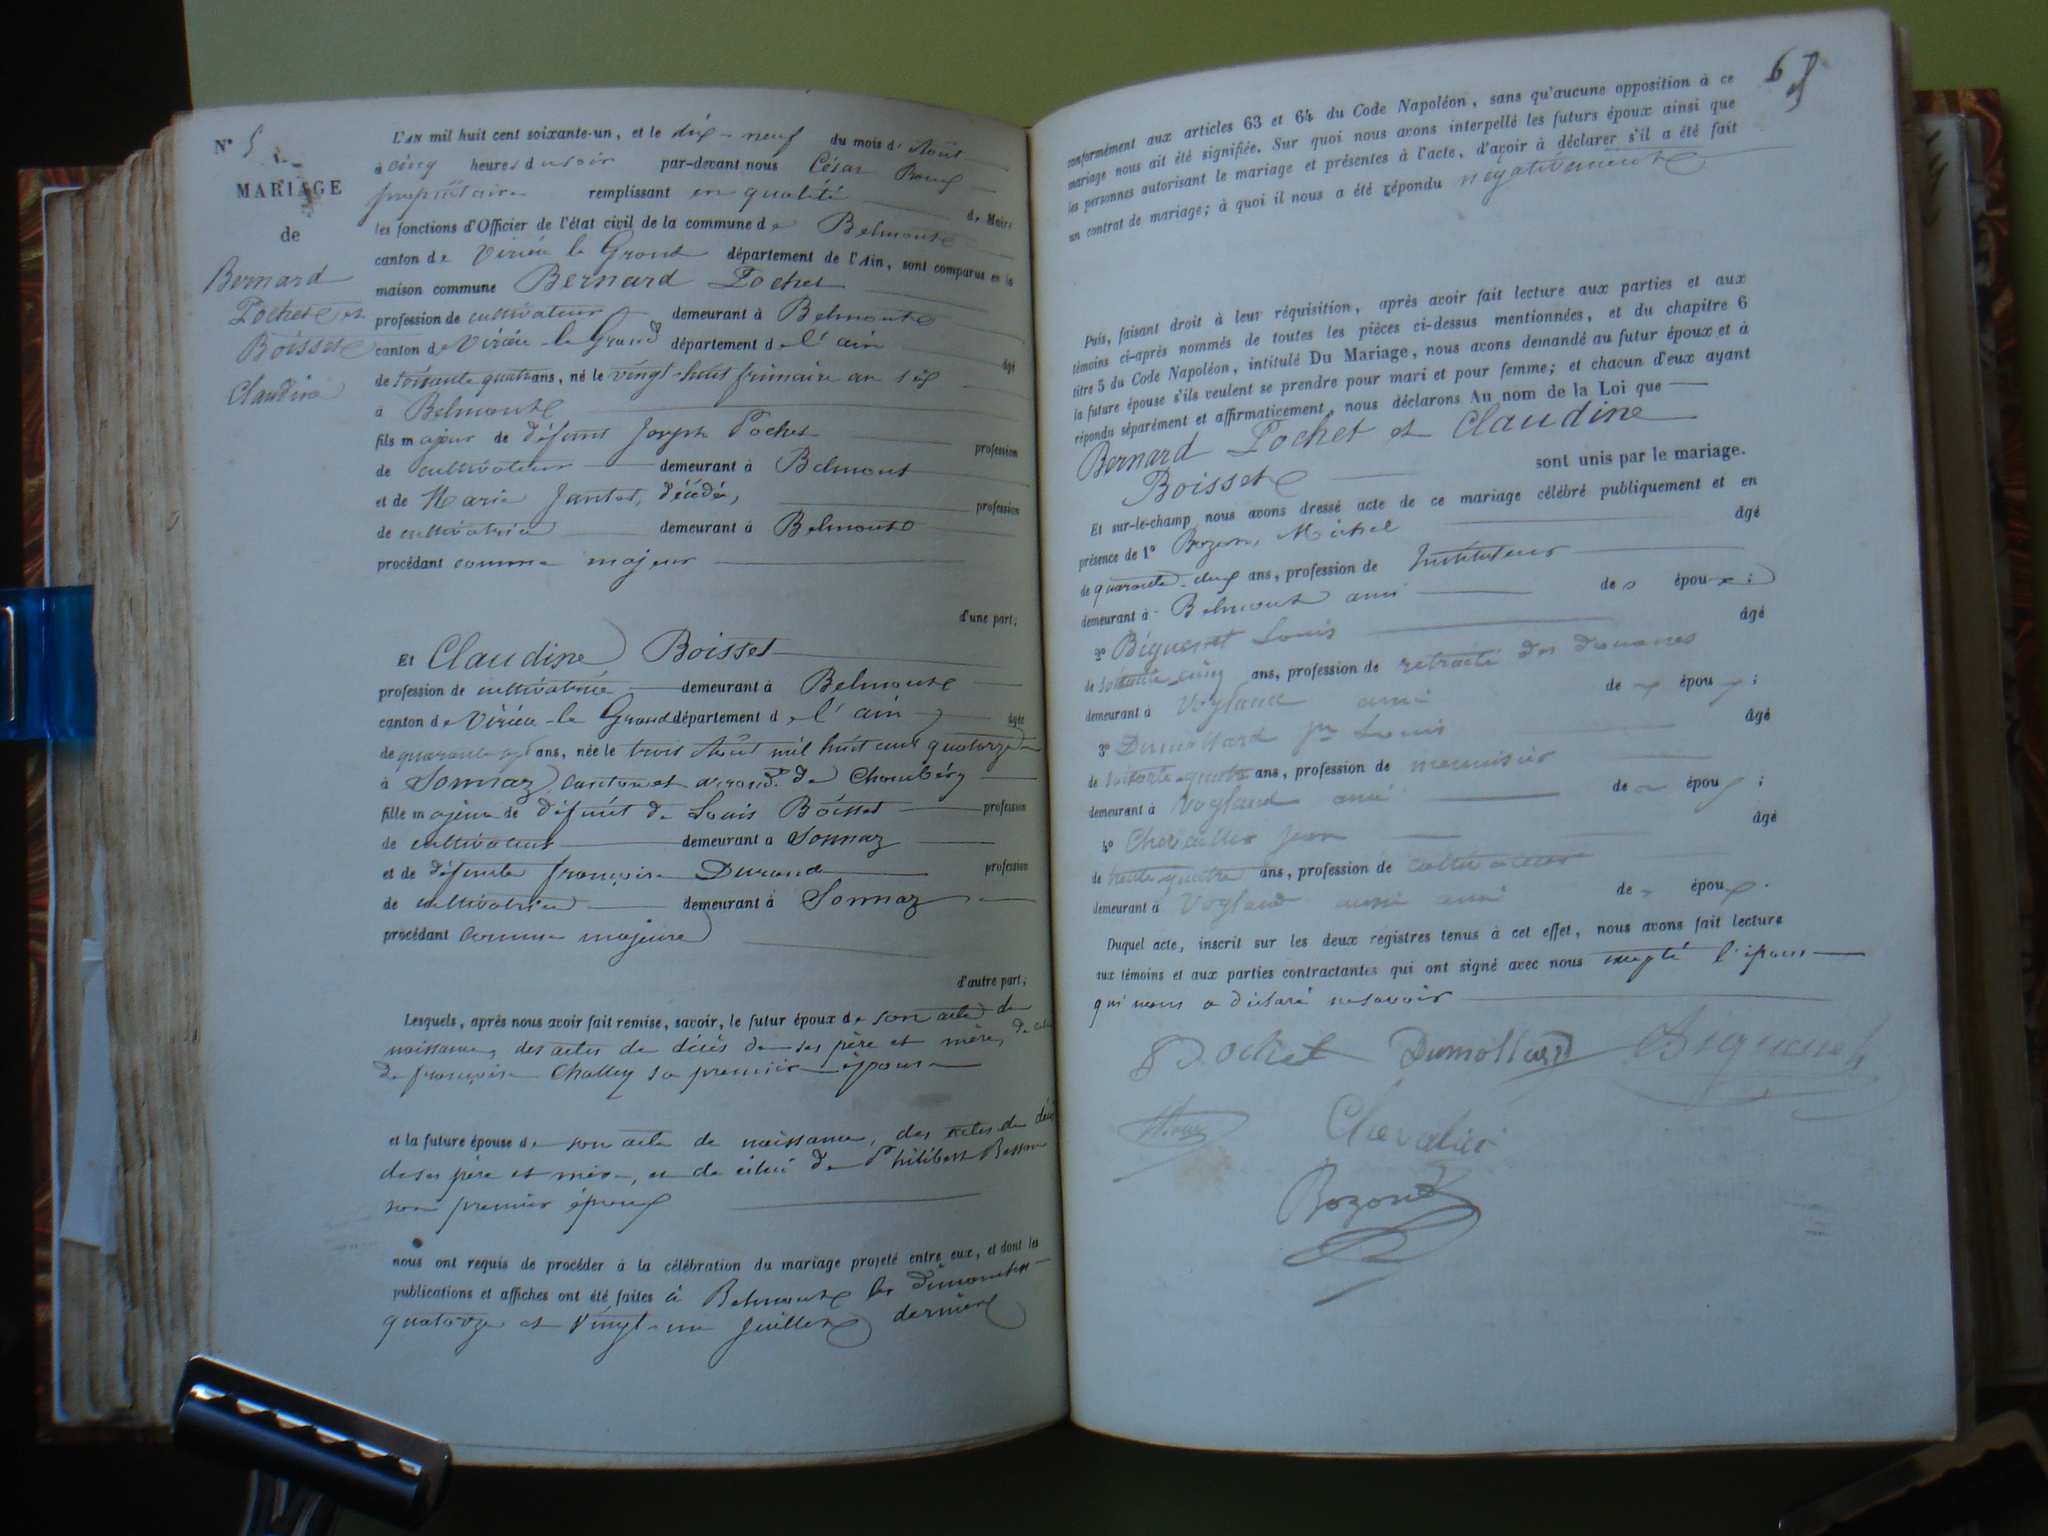 N° 5
MARIAGE
de
Bernard
Pochet et
Boisset
Claudine
L'AN mil huit cent soixante-un, et le dix-neuf du mois d'Août
à cinq heures du soir par-devant nous César
propriétaire remplissant en qualité de Maire
les fonctions d'Officier de l'état civil de la commune de Belmont
canton de Virieu le Grand département de l'Ain, sont comparus en la
maison commune Bernard Pochet
profession de cultivateur demeurant à Belmont
canton de Virieu-le Grand département de l'ain âgé
de soixante quatre ans, né le vingt-huit frimaire an
à Belmont
fils majeur de défunt Joseph Pochet profession
de cultivateur demeurant à Belmont
et de Marie Jantet, décédée, profession
de cultivatrice demeurant à Belmont
procédant comme majeur
d'une part;
Et Claudine Boisset
profession de cultivatrice demeurant à Belmont
canton de Virieu-le Grand département de l'ain âgée
de quarante sept ans, née le trois Août mil huit cent quatorze
à Sonnaz, canton et arrond.t de Chambéry
fille majeure de défunt de Louis Boisset profession
de cultivateur demeurant à Sonnaz
et de défunte françoise Durand profession
de cultivatrice demeurant à Sonnaz
procédant comme majeure
d'autre part;
Lesquels, après nous avoir fait remise, savoir, le futur époux de son acte de
naissance, des actes de décès de ses père et mère, de celui
de françoise Challey sa première épouse
et la future épouse de son acte de naissance, des actes de décès
de ses père et mère, et de celui de Philibert Besson
son premier époux
nous ont requis de procéder à la célébration du mariage projeté entre eux, et dont les
publications et affiches ont été faites à Belmont les dimanches
quatorze et vingt-un juillet dernier
6
conformément aux articles 63 et 64 du Code Napoléon, sans qu'aucune opposition à ce
mariage nous ait été signifiée. Sur quoi nous avons interpellé les futurs époux ainsi que
les personnes autorisant le mariage et présentes à l'acte, d'avoir à déclarer s'il a été fait
un contrat de mariage; à quoi il nous a été répondu négativement
Puis, faisant droit à leur réquisition, après avoir fait lecture aux parties et aux
témoins ci-après nommés de toutes les pièces ci-dessus mentionnées, et du chapitre 6
titre 5 du Code Napoléon, intitulé Du Mariage, nous avons demandé au futur époux et à
la future épouse s'ils veulent se prendre pour mari et pour femme; et chacun d'eux ayant
répondu séparément et affirmativement, nous déclarons Au nom de la Loi que
Bernard Pochet et Claudine
Boisset sont unis par le mariage.
Et sur-le-champ nous avons dressé acte de ce mariage célébré publiquement et en
présence de 1° Bozon, Michel âgé
de quarante-deux ans, profession de Instituteur
demeurant à Belmont ami des époux;
2° Biguenet Louis âgé
de soixante cinq ans, profession de retraité des douanes
demeurant à Vogland ami de époux;
3° Dumollard Louis âgé
de soixante-quatre ans, profession de menuisier
demeurant à Vogland ami de époux;
4° Chevallier Jean âgé
de trente-quatre ans, profession de cultivateur
demeurant à Vogland aussi ami de époux.
Duquel acte, inscrit sur les deux registres tenus à cet effet, nous avons fait lecture
aux témoins et aux parties contractantes qui ont signé avec nous excepté l'épouse
qui nous a déclaré ne savoir
B Pochet Dumollard Biguenet
Chevalier
Bozon